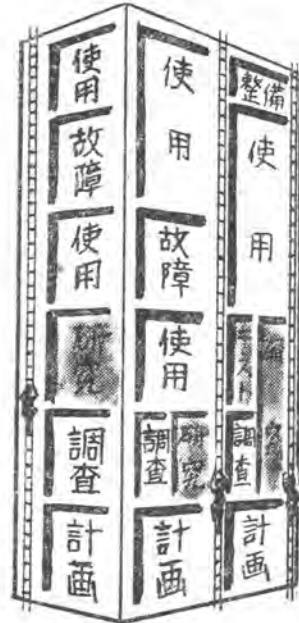 使用
故障
使用
研究
調査
計画
使用
故障
使用
調査
研究
計画
整備
使用
テスト
研究
調査
計画